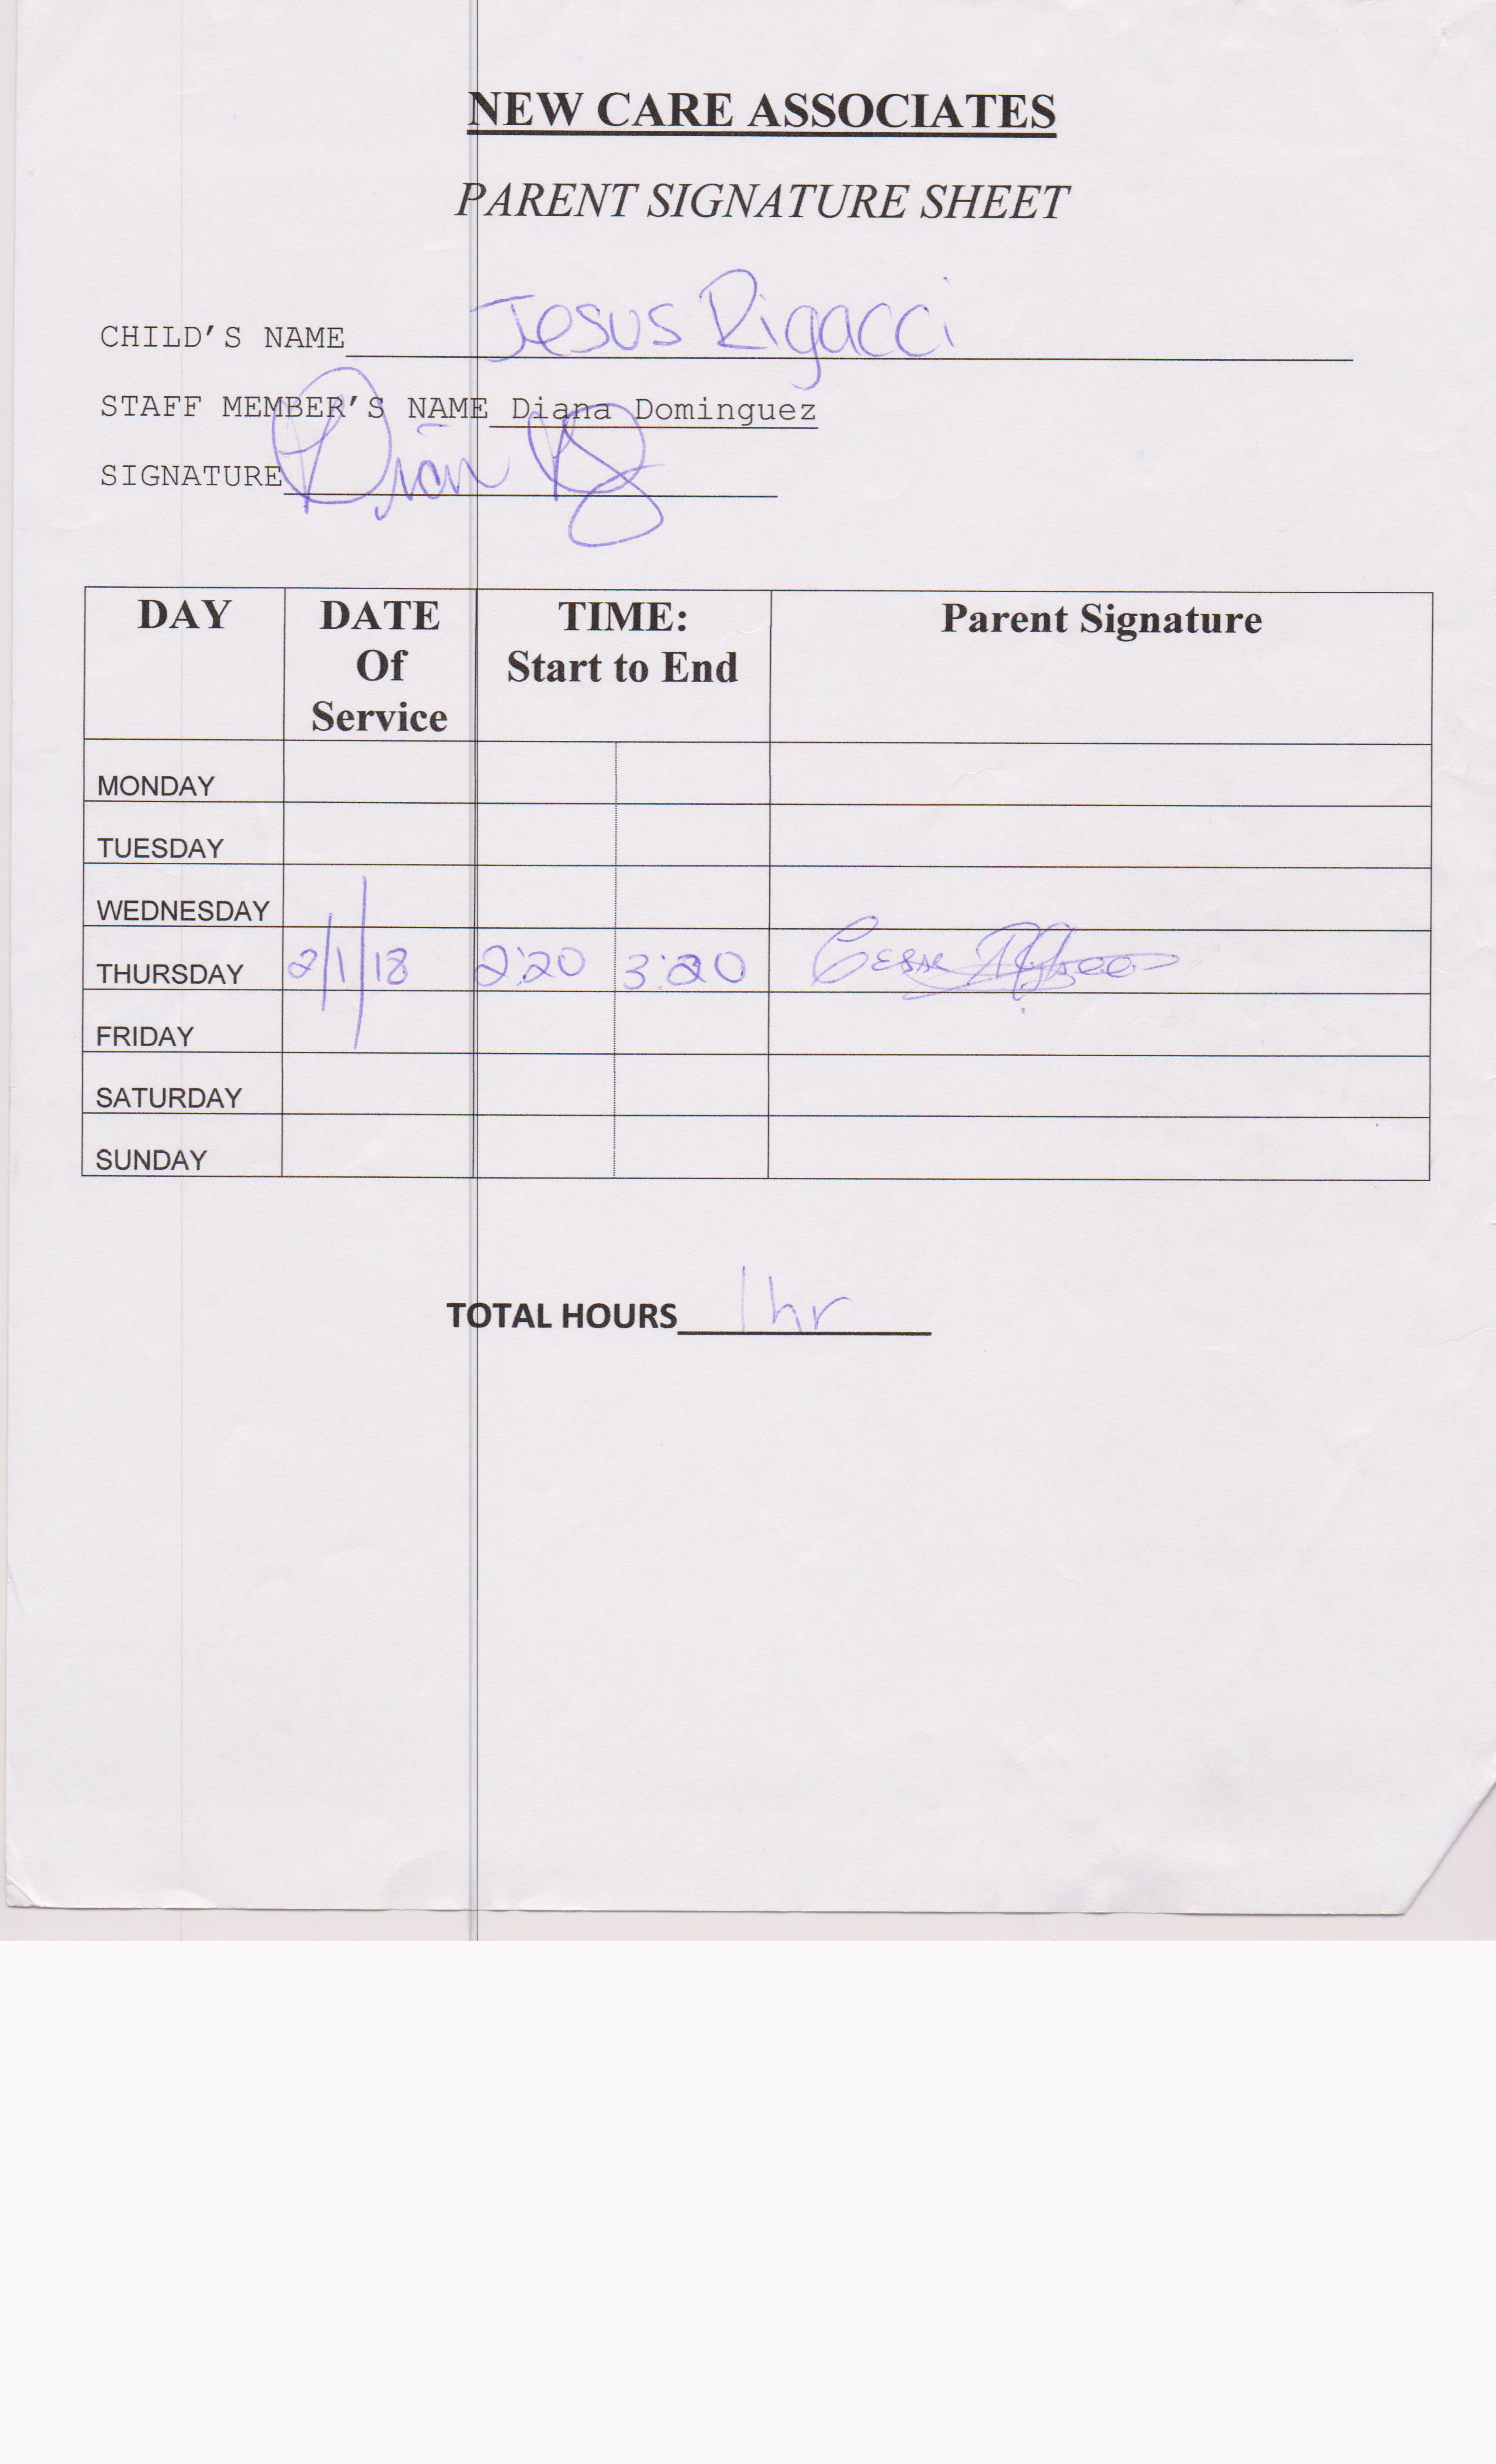 NEW CARE ASSOCIATES
PARENT SIGNATURE SHEET
CHILD'S NAME Jesus Rigacci
STAFF MEMBER'S NAME Diana Dominguez
SIGNATURE
DAY DATE Of Service TIME: Start to End Parent Signature
MONDAY
TUESDAY
WEDNESDAY
THURSDAY 2/1/18 2:20 3:20 Cesar
FRIDAY
SATURDAY
SUNDAY
TOTAL HOURS 1 hr